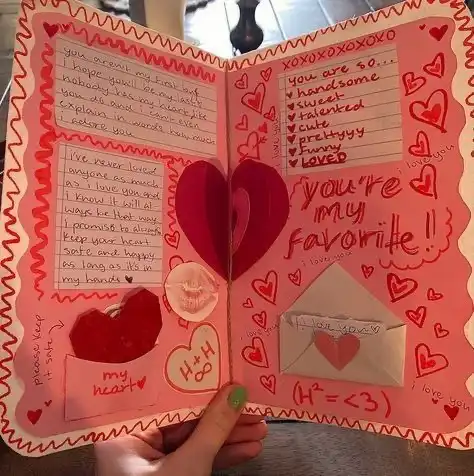 you arent my first but
I hope you'll be my last
nobody has my heart like
you do and i cant even
explain in words how much
I adore you
I've never loved
anyone as much
as i love you and
I know it will al
ways be that way
I promise to always
keep your heart
safe and happy
as long as it's in
my hands ♥
please keep
it safe
my
heart ♥
H + H
∞
XOXOXOXOXOXO
you are so...
♥ handsome
♥ sweet
♥ talented
♥ cute
♥ prettyyy
♥ funny
♥ LOVED
i love you
you're
my
favorite!!
i love you
i love you
I love you ♡
i love you
i love you
(H² = <3)
i love you